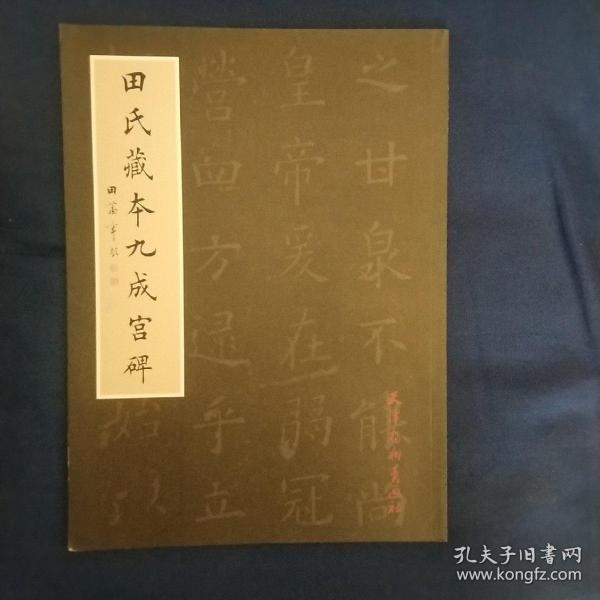 田氏藏本九成宫碑
田蕴章题
之甘泉不能尚
皇帝爰在弱冠
营四方逮乎立
始以
天津杨柳青画社
孔夫子旧书网
www.kongfz.com